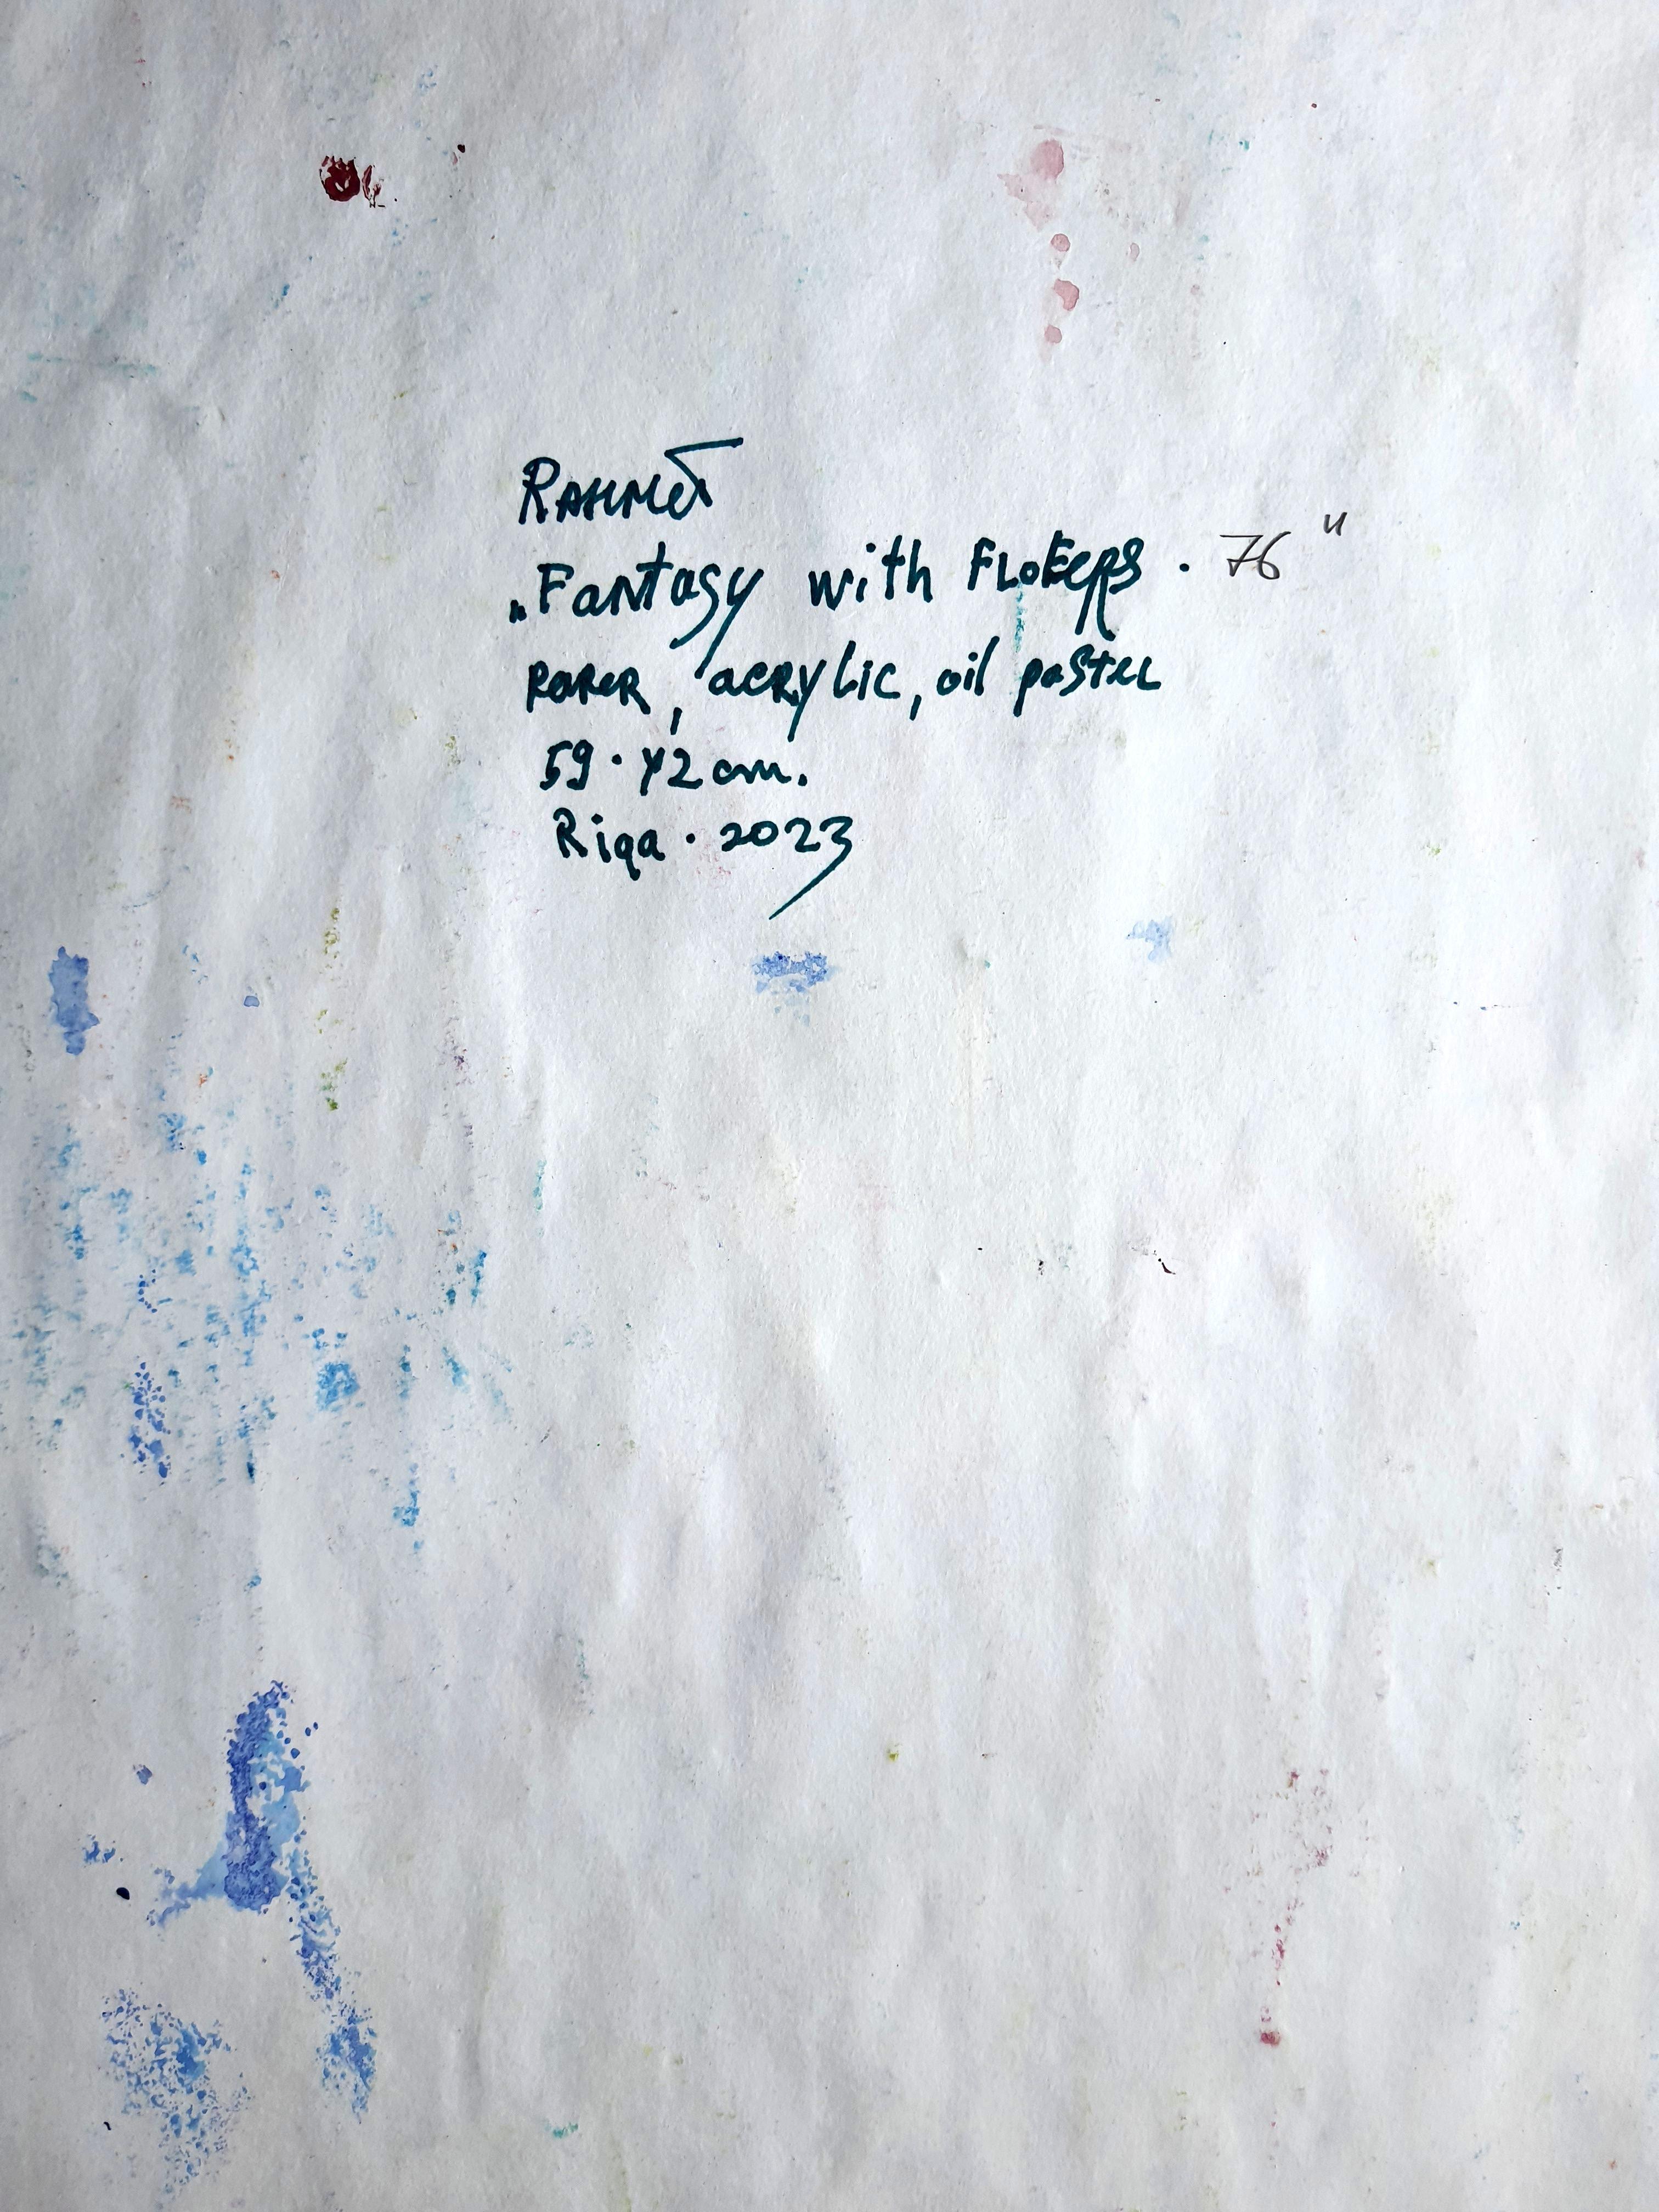 Rahmet
„Fantasy with Flowers . 76"
paper, acrylic, oil pastel
59 · 42 cm.
Riga · 2023